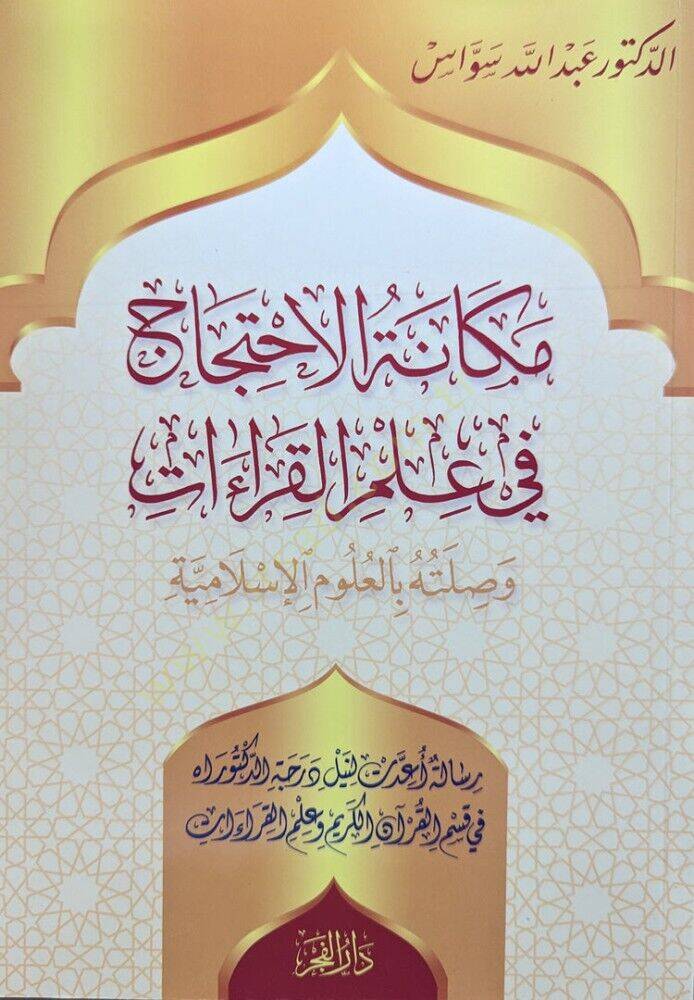 الدكتور عبد الله سوَّاس
مَكَانَةُ الِاحْتِجَاجِ
فِي عِلْمِ القِرَاءَاتِ
وَصِلَتُهُ بِالعُلُومِ الإِسْلَامِيَّةِ
رِسَالَةٌ أُعِدَّتْ لِنَيْلِ دَرَجَةِ الدُّكْتُورَاه
فِي قِسْمِ القُرْآنِ الكَرِيمِ وَعِلْمِ القِرَاءَاتِ
دَارُ الفَجْرِ